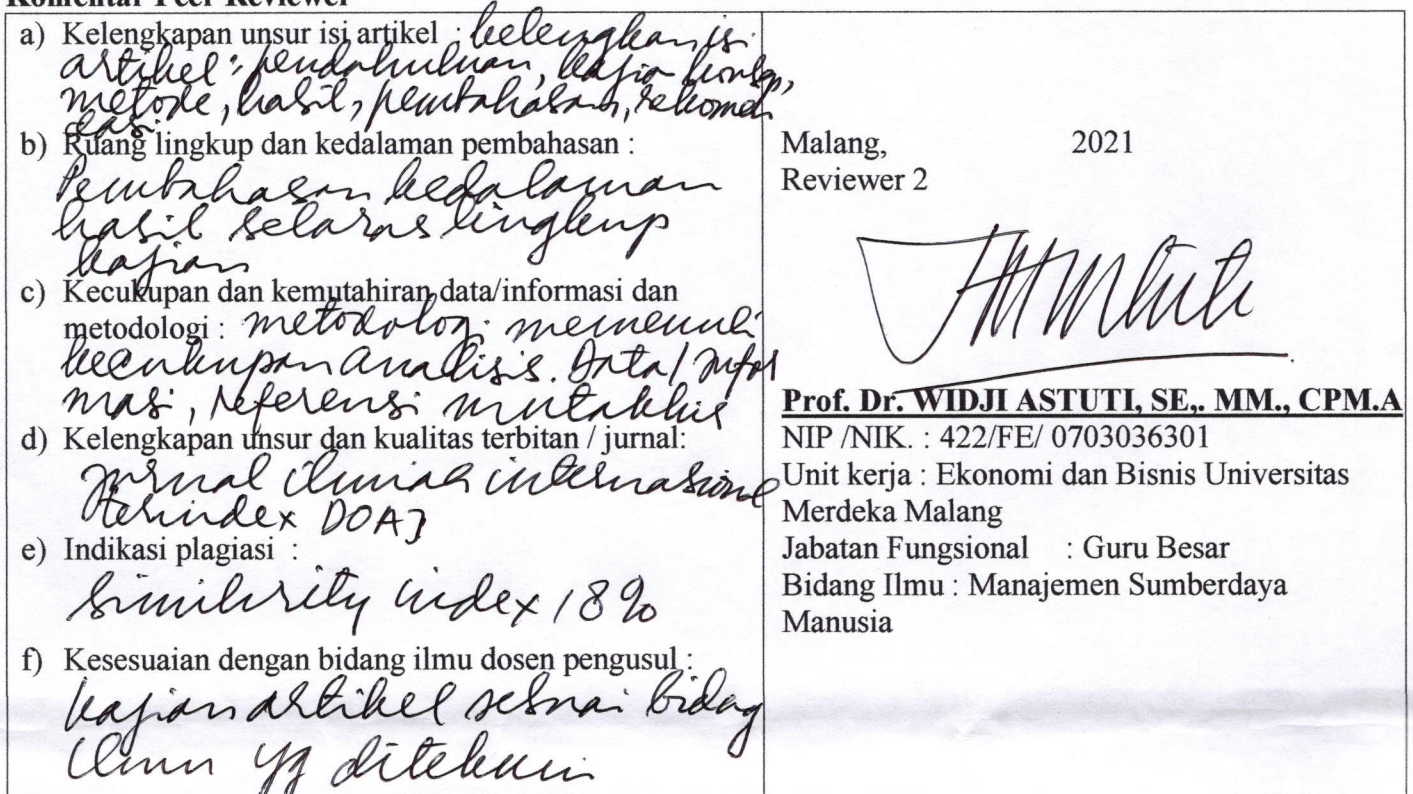 Komentar Peer Reviewer
a) Kelengkapan unsur isi artikel : kelengkapan isi
artikel : pendahuluan, kajian konsep,
metode, hasil, pembahasan, rekomen
dasi
b) Ruang lingkup dan kedalaman pembahasan :
Pembahasan kedalaman
hasil selaras lingkup
kajian
c) Kecukupan dan kemutahiran data/informasi dan
metodologi : metodologi memenuhi
kecukupan analisis. Data/infor
masi, referensi mutakhir
d) Kelengkapan unsur dan kualitas terbitan / jurnal:
jurnal ilmiah internasional
terindex DOAJ
e) Indikasi plagiasi :
Similirity index 18%
f) Kesesuaian dengan bidang ilmu dosen pengusul :
kajian artikel sesuai bidang
ilmu yg ditekuni
Malang, 2021
Reviewer 2
Prof. Dr. WIDJI ASTUTI, SE,. MM., CPM.A
NIP /NIK. : 422/FE/ 0703036301
Unit kerja : Ekonomi dan Bisnis Universitas
Merdeka Malang
Jabatan Fungsional : Guru Besar
Bidang Ilmu : Manajemen Sumberdaya
Manusia